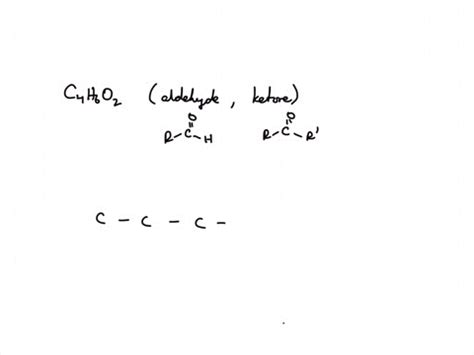 C4H8O2 (aldehyde, ketone)
O O
R-C-H R-C-R'
C - C - C -